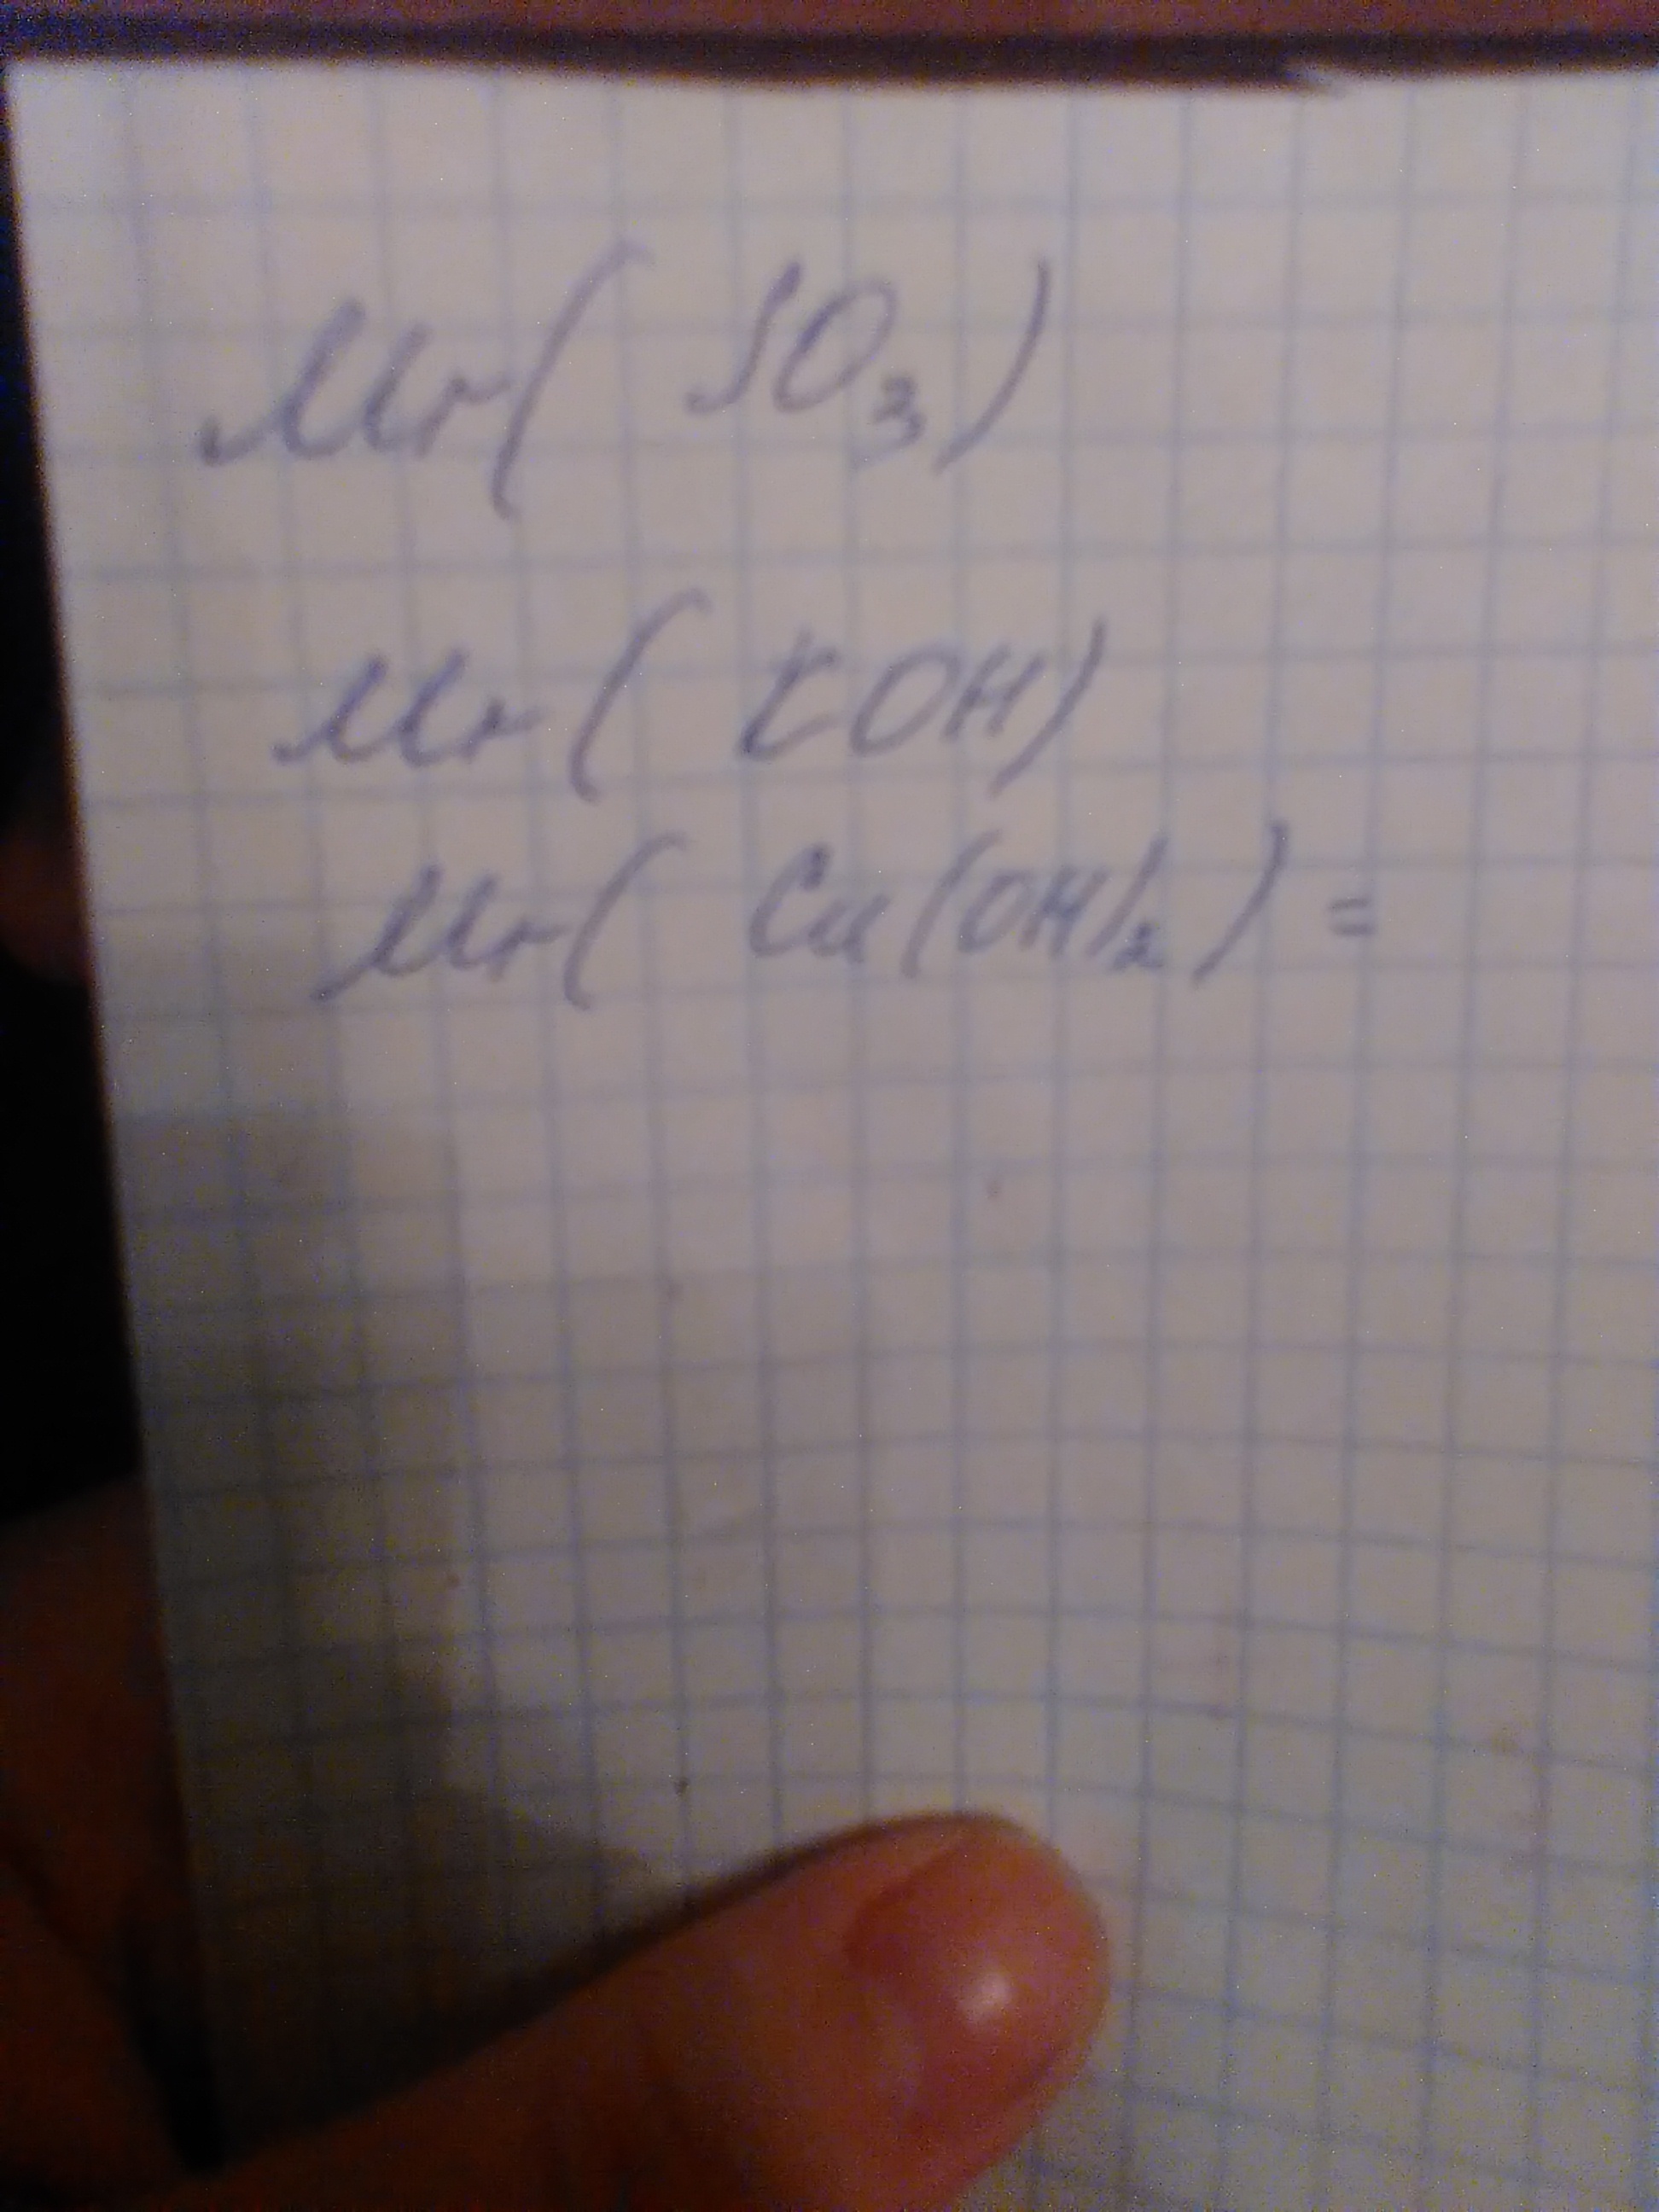 Mr( SO₃)
Mr( KOH)
Mr( Cu(OH)₂) =